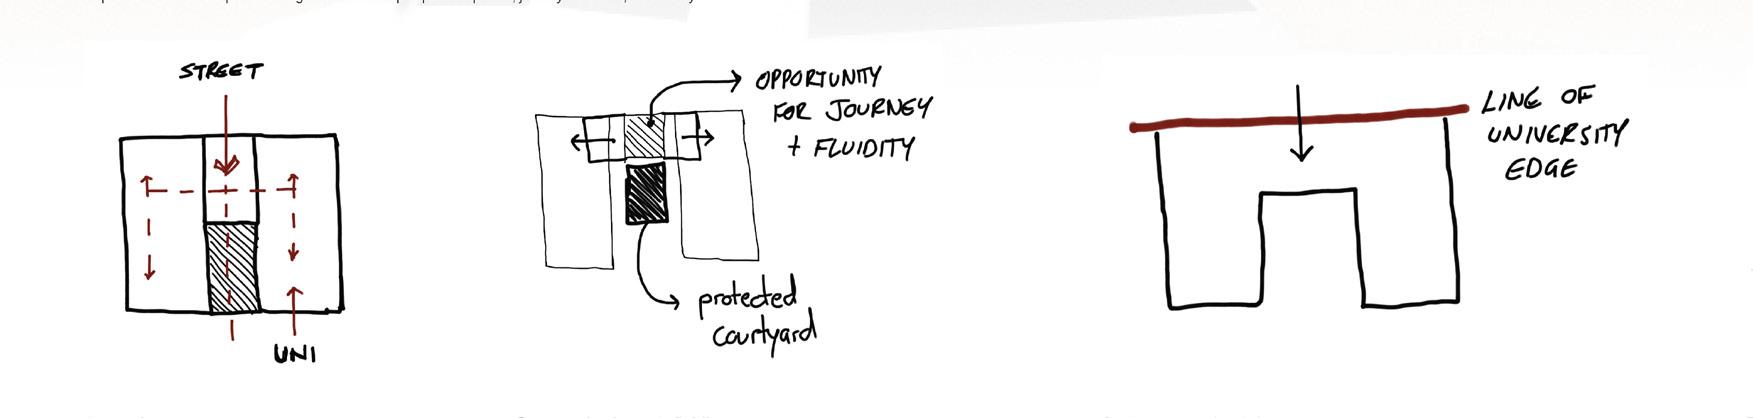 STREET
UNI
OPPORTUNITY
FOR JOURNEY
+ FLUIDITY
protected
courtyard
LINE OF
UNIVERSITY
EDGE